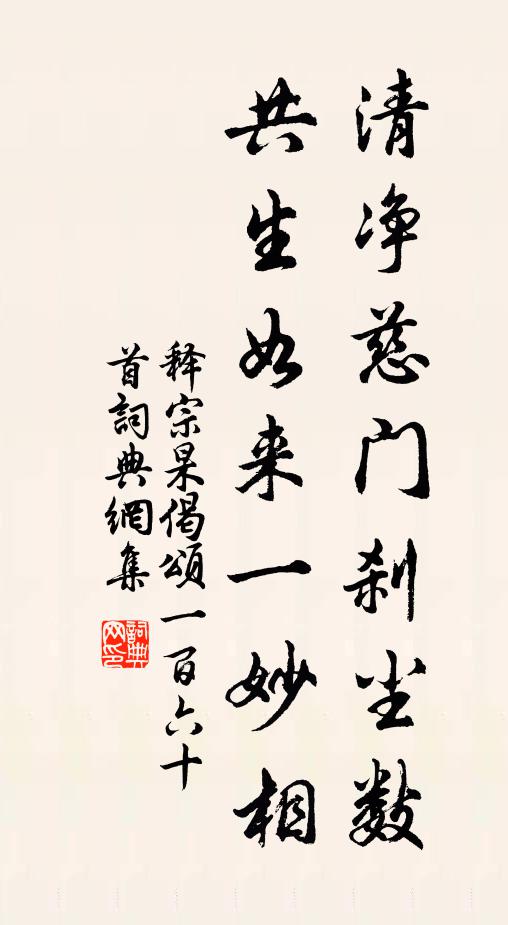 清净慈门刹尘数
共生如来一妙相
释宗杲偈頌一百六十
首詞典網集
詞典
网印